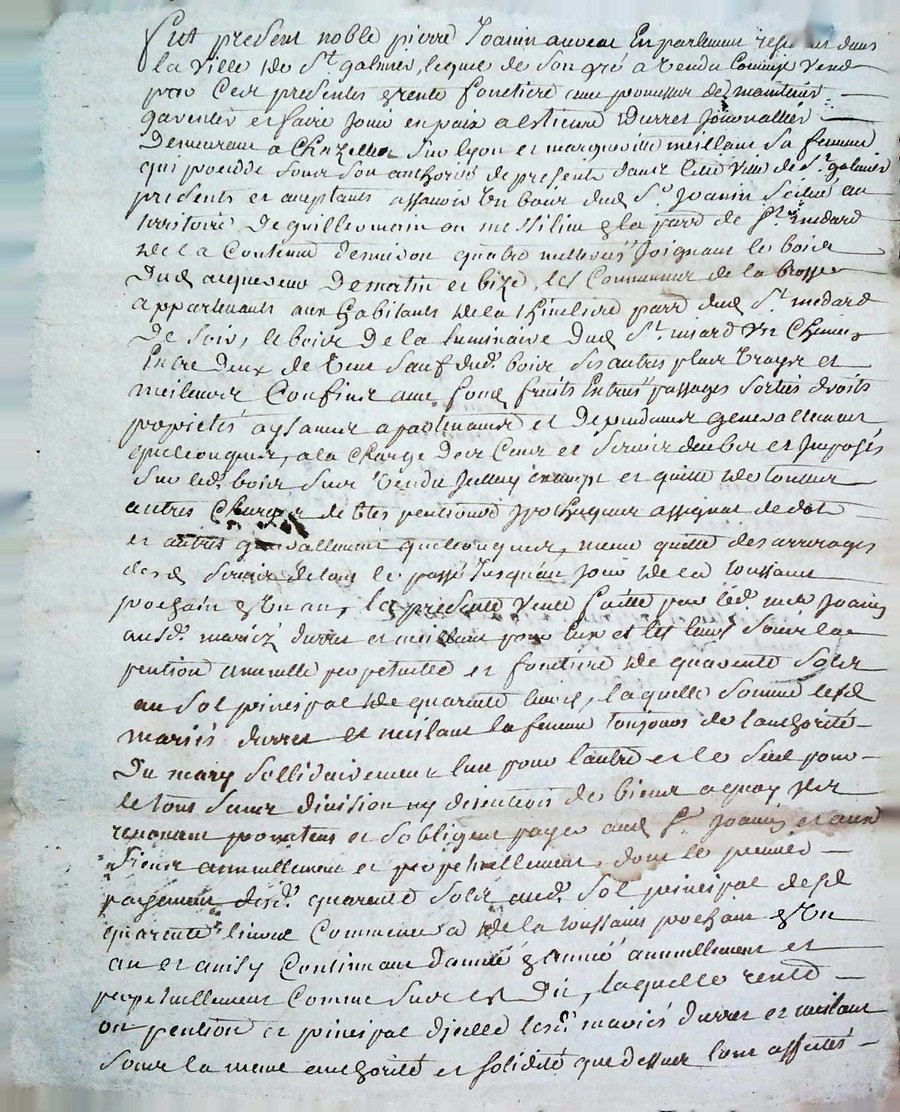 Fut present noble pierre Joanin avocat En parlement resident dans
la ville de St galmier, lequel de son gré a vendu Comme vend
par Ces presentes a rente fonciere avec promesse de maintenir
garentir et faire Jouir en paix a estienne durret Journallier
Demeurant a Chazelles sur lyon et marguerite meillant sa femme
qui procedde sous son authorité de present dans cette ville de St galmier
presents et aceptants assavoir Un bois dud Sr Joanin Scitué au
territoire de guillermain ou messilieu a la parr de St medard
de la Contenue denviron quatre Joignant le bois
Dud acquereur De matin et bize, les Communes de la brosse
appartenants aux habitants de la thineliere parr dud St medard
De soir, le bois de la luminaire dud St Un Chemin
Entre deux de Sauf dud. bois ses autres plus vrays et
meilleurs Confins avec fond fruits Entrées passages Sorties droits
proprietés aysances apartenances et Dependances generallement
quelconques, a la Charge des Cens et Servis deubs et Imposés
Sur led. bois Sus vendu Jceluy exempt et quitte de toutes
autres Charges debtes pentions ypotheques assignat de dot
et autres generallement quelconques, meme quitte des arrerages
desd Servis de tout le passé Jusqu'au Jour de la toussaint
prochain a Un an, la presente vente faitte par led. me Joanin
ausd. mariéz durret et meillant pour eux et les leurs sous la
pention annuelle perpetuelle et fonciere de quarente Sols
au Sol principal de quarente livres, laquelle Somme lesd
mariés durret et meilant la femme toujours de l'authorité
Du mary Sollidairement l'un pour l'autre et le Seul pour
le tout Sans division ny discution de biens a quoy ils
renoncent promettent et s'obligent payer aud Sr Joanin et aux
Siens annuellement et perpetuellement, dont le premier
payement desd. quarente Sols aud. Sol principal desd
quarente livres Commencera de la toussaint prochain a Un
an et ainsy Continuant d'année a année annuellement et
perpetuellement Comme Sus est Dit, laquelle rente
ou pention et principal d'jcelle lesd. mariés durret et meilant
Sous la meme authorité et Solidité que dessus l'ont assurés